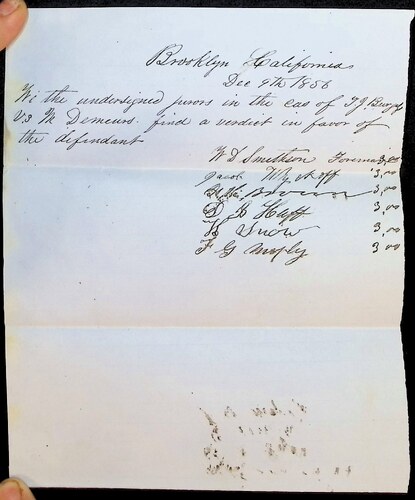 Brooklyn California
Dec 9th 1856
We the undersigned jurors in the cas of T J
Vs M Demeurs find a verdict in favor of
the defendant
W D Smithson Foreman 3,00
Jacob Wyckoff 3,00
Brown 3,00
D B Huff 3,00
Snow 3,00
F G Murphy 3 00